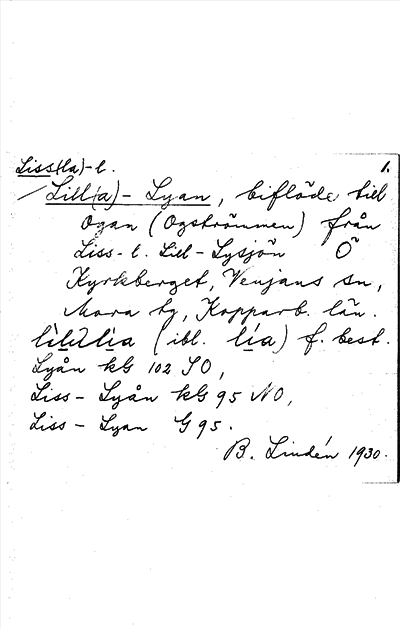 Liss(la)-l. 1.
Lill(a)- Lyan, biflöde till
Ogan (Ogströmmen) från
Liss- l. Lill-Lysjön Ö
Kyrkberget, Venjans sn,
Mora tg, Kopparb. län.
(ibl. lía) f. best.
Lyån kG 102 SO,
Liss-Lyån kG 95 NO,
Liss-Lyan G 95.
B. Lindén 1930.